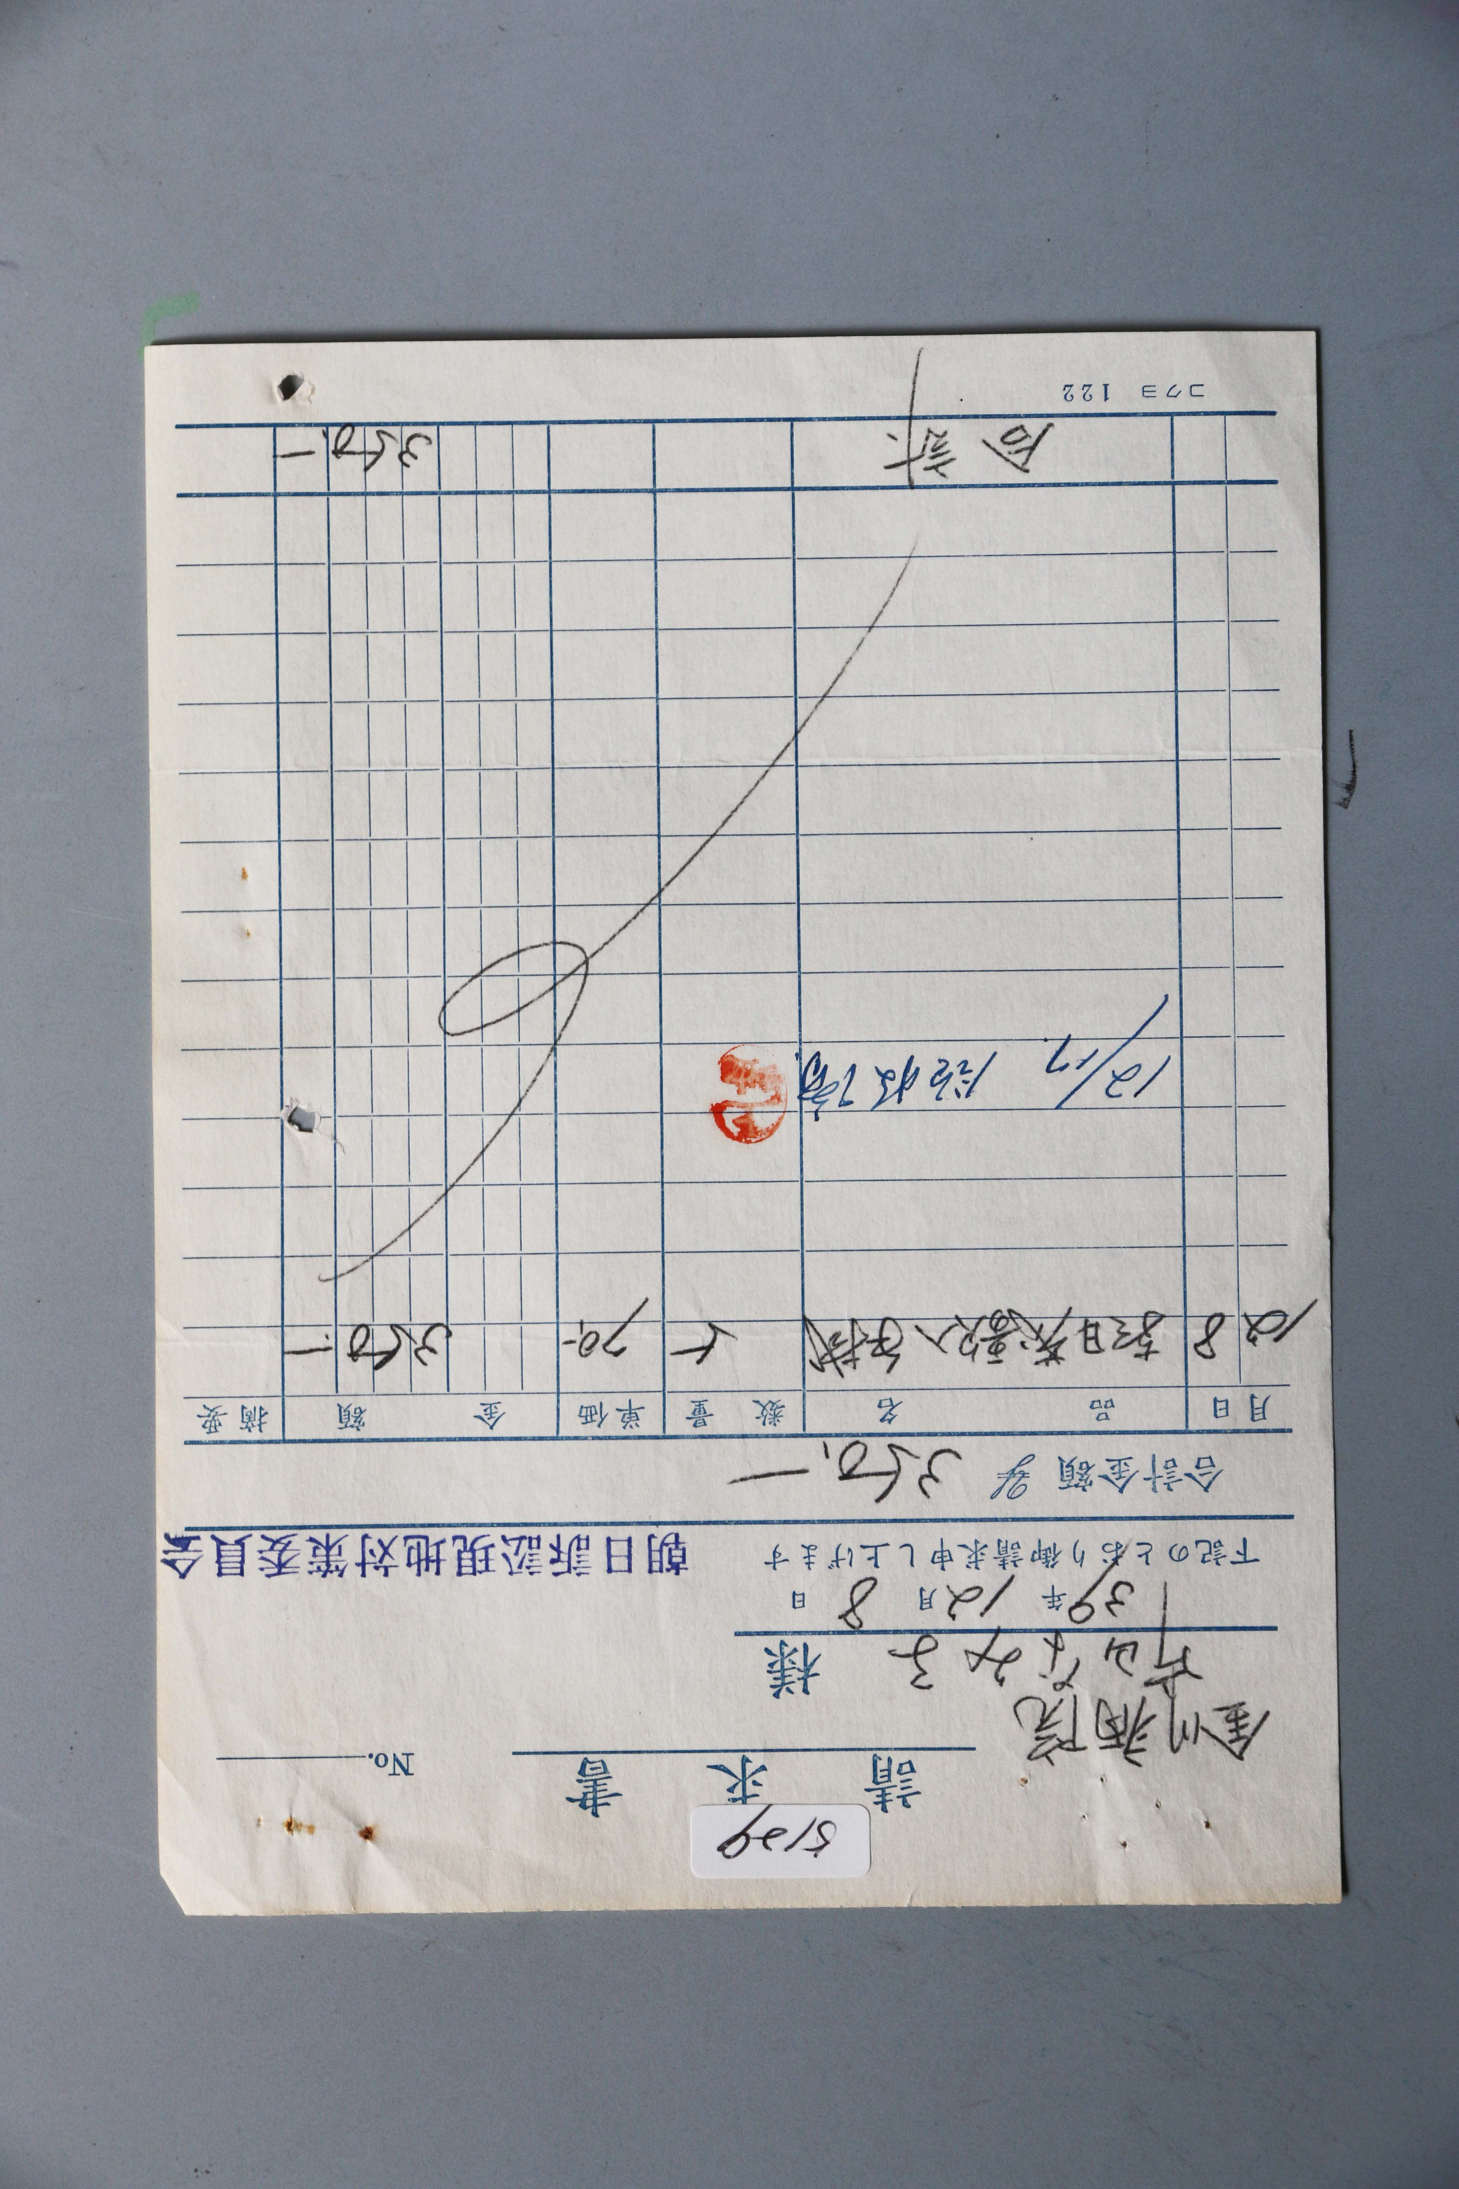 5129
請求書
No.
金川病院
片山なみ子 様
39年12月8日
下記のとおり御請求申し上げます
朝日訴訟現地対策委員会
合計金額 ¥ 350.-
月 日 品名 数量 単価 金額 摘要
12 8 朝日茂 5 70.- 350.-
12/17 領収済
合計 350.-
コクヨ 122